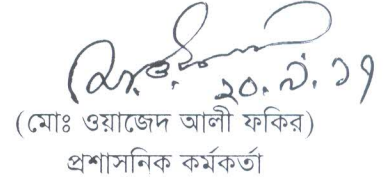 ২০.৯.১৭
(মোঃ ওয়াজেদ আলী ফকির)
প্রশাসনিক কর্মকর্তা